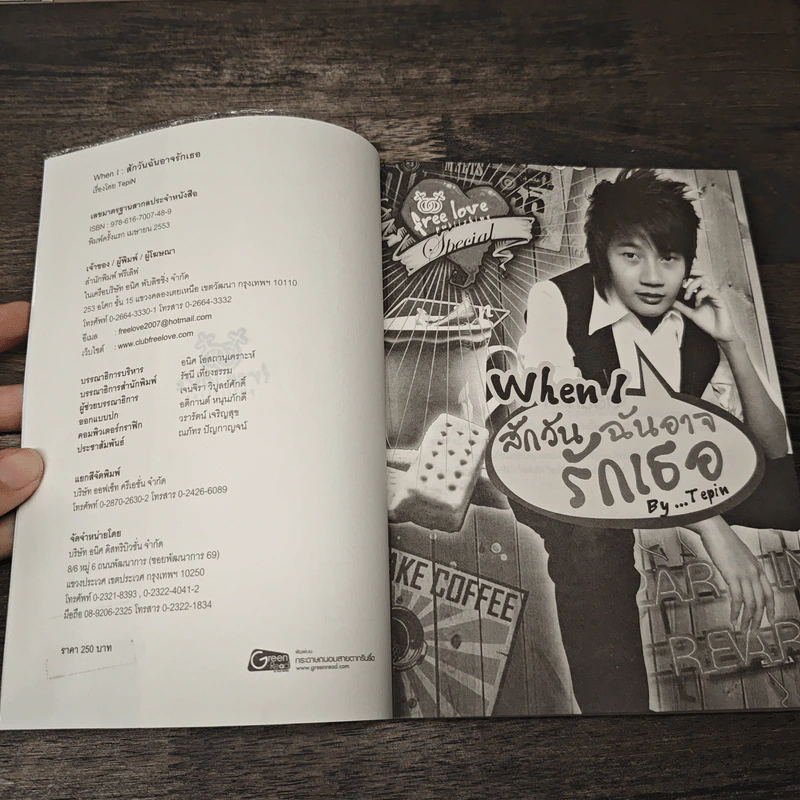 When I : สักวันฉันอาจรักเธอ
เรื่องโดย TepiN
เลขมาตรฐานสากลประจำหนังสือ
ISBN : 978-616-7007-48-9
พิมพ์ครั้งแรก เมษายน 2553
เจ้าของ / ผู้พิมพ์ / ผู้โฆษณา
สำนักพิมพ์ ฟรีเลิฟ
ในเครือบริษัท อนิศ พับลิชชิ่ง จำกัด
253 อโศก ชั้น 15 แขวงคลองเตยเหนือ เขตวัฒนา กรุงเทพฯ 10110
โทรศัพท์ 0-2664-3330-1 โทรสาร 0-2664-3332
อีเมล : freelove2007@hotmail.com
เว็บไซต์ : www.clubfreelove.com
บรรณาธิการบริหาร อนิศ โอสถานุเคราะห์
บรรณาธิการสำนักพิมพ์ รัชนี เที่ยงธรรม
ผู้ช่วยบรรณาธิการ เจนจิรา วิบูลย์ศักดิ์
ออกแบบปก อติกานต์ หนุนภักดี
คอมพิวเตอร์กราฟิก วรารัตน์ เจริญสุข
ประชาสัมพันธ์ ณภัทร ปัญกาญจน์
แยกสีจัดพิมพ์
บริษัท ออฟเซ็ท ครีเอชั่น จำกัด
โทรศัพท์ 0-2870-2630-2 โทรสาร 0-2426-6089
จัดจำหน่ายโดย
บริษัท อนิศ ดิสทริบิวชั่น จำกัด
8/6 หมู่ 6 ถนนพัฒนาการ (ซอยพัฒนาการ 69)
แขวงประเวศ เขตประเวศ กรุงเทพฯ 10250
โทรศัพท์ 0-2321-8393 , 0-2322-4041-2
มือถือ 08-9206-2325 โทรสาร 0-2322-1834
ราคา 250 บาท
Green Read
พิมพ์บน
กระดาษถนอมสายตากรีนรี้ด
www.greenread.com
free love
Special
When I
สักวัน ฉันอาจ
รักเธอ
By ...Tepin
AKE COFFEE